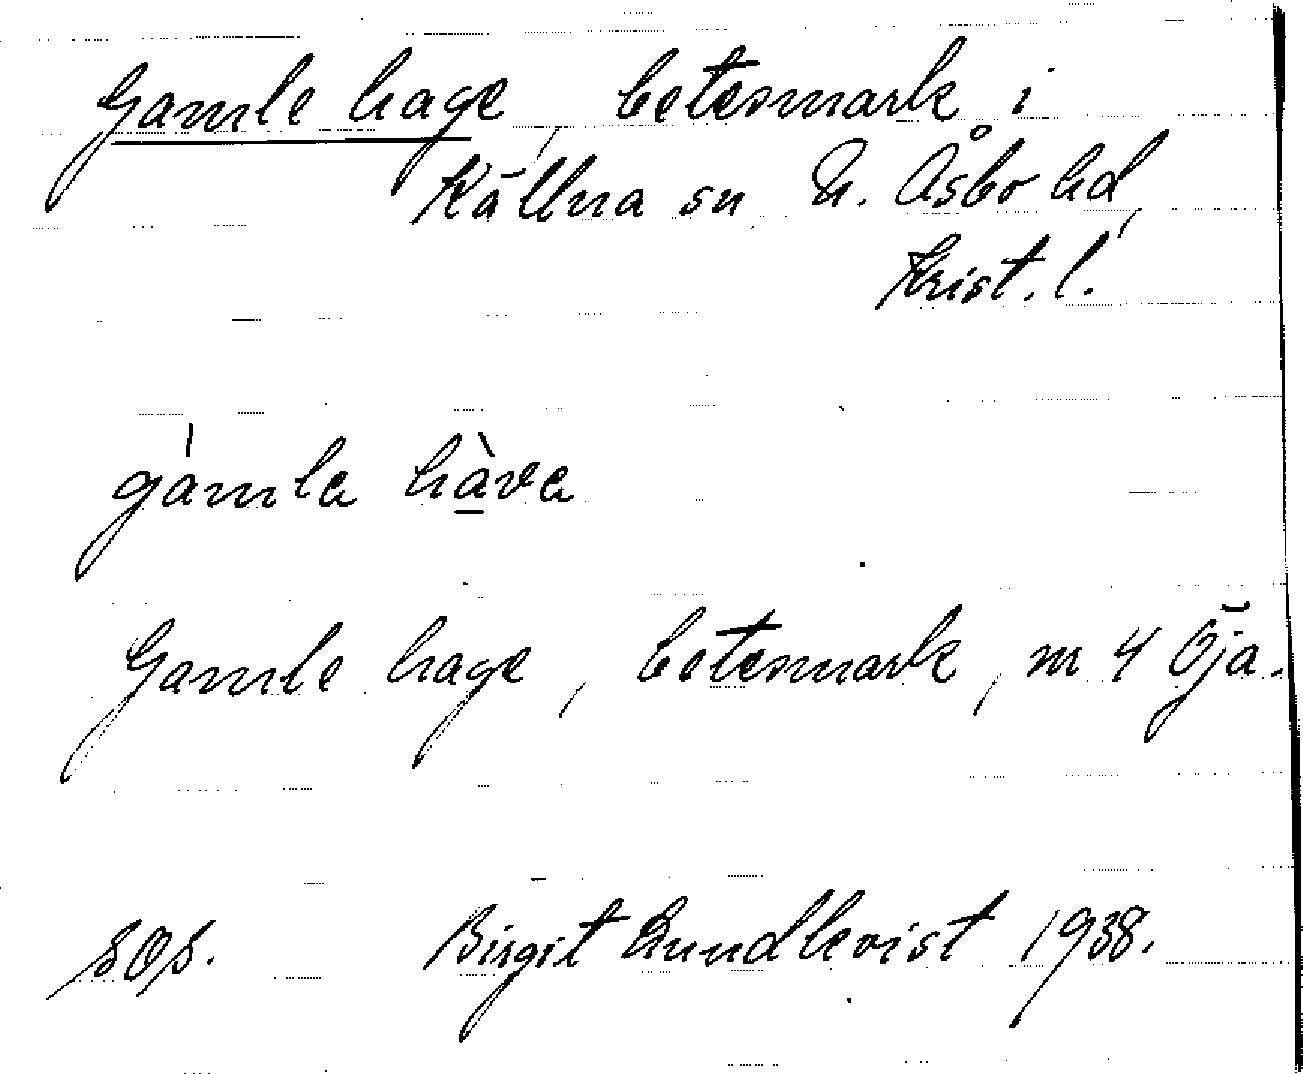 Gamle hage, betesmark i
Källna sn N. Åsbo hd,
Krist. l.
gámla hàva
Gamle hage, betesmark, nr 4 Öja.
SOS. Birgit Lundkvist 1938.